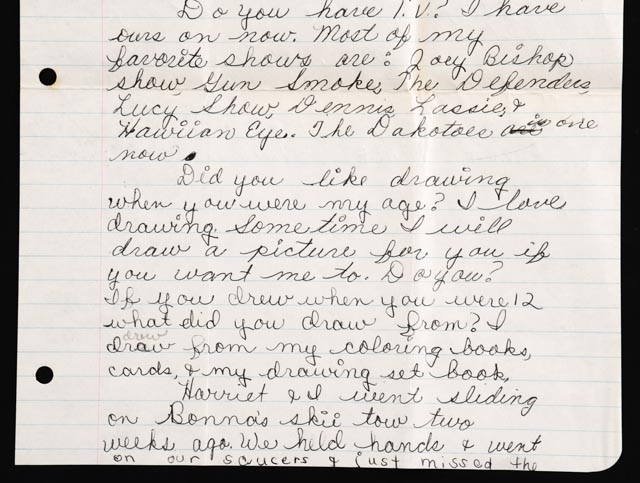 Do you have T.V.? I have
ours on now. Most of my
favorite shows are: Joey Bishop
show, Gun Smoke, The Defenders,
Lucy Show, Dennis, Lassie, &
Hawiian Eye. The Dakotoes is one
now.
Did you like drawing
when you were my age? I love
drawing. Sometime I will
draw a picture for you if
you want me to. Do you?
If you drew when you were 12
what did you draw from? I
draw from my coloring books,
cards, & my drawing set book.
Harriet & I went sliding
on Bonna's skii tow two
weeks ago. We held hands & went
on our saucers & just missed the